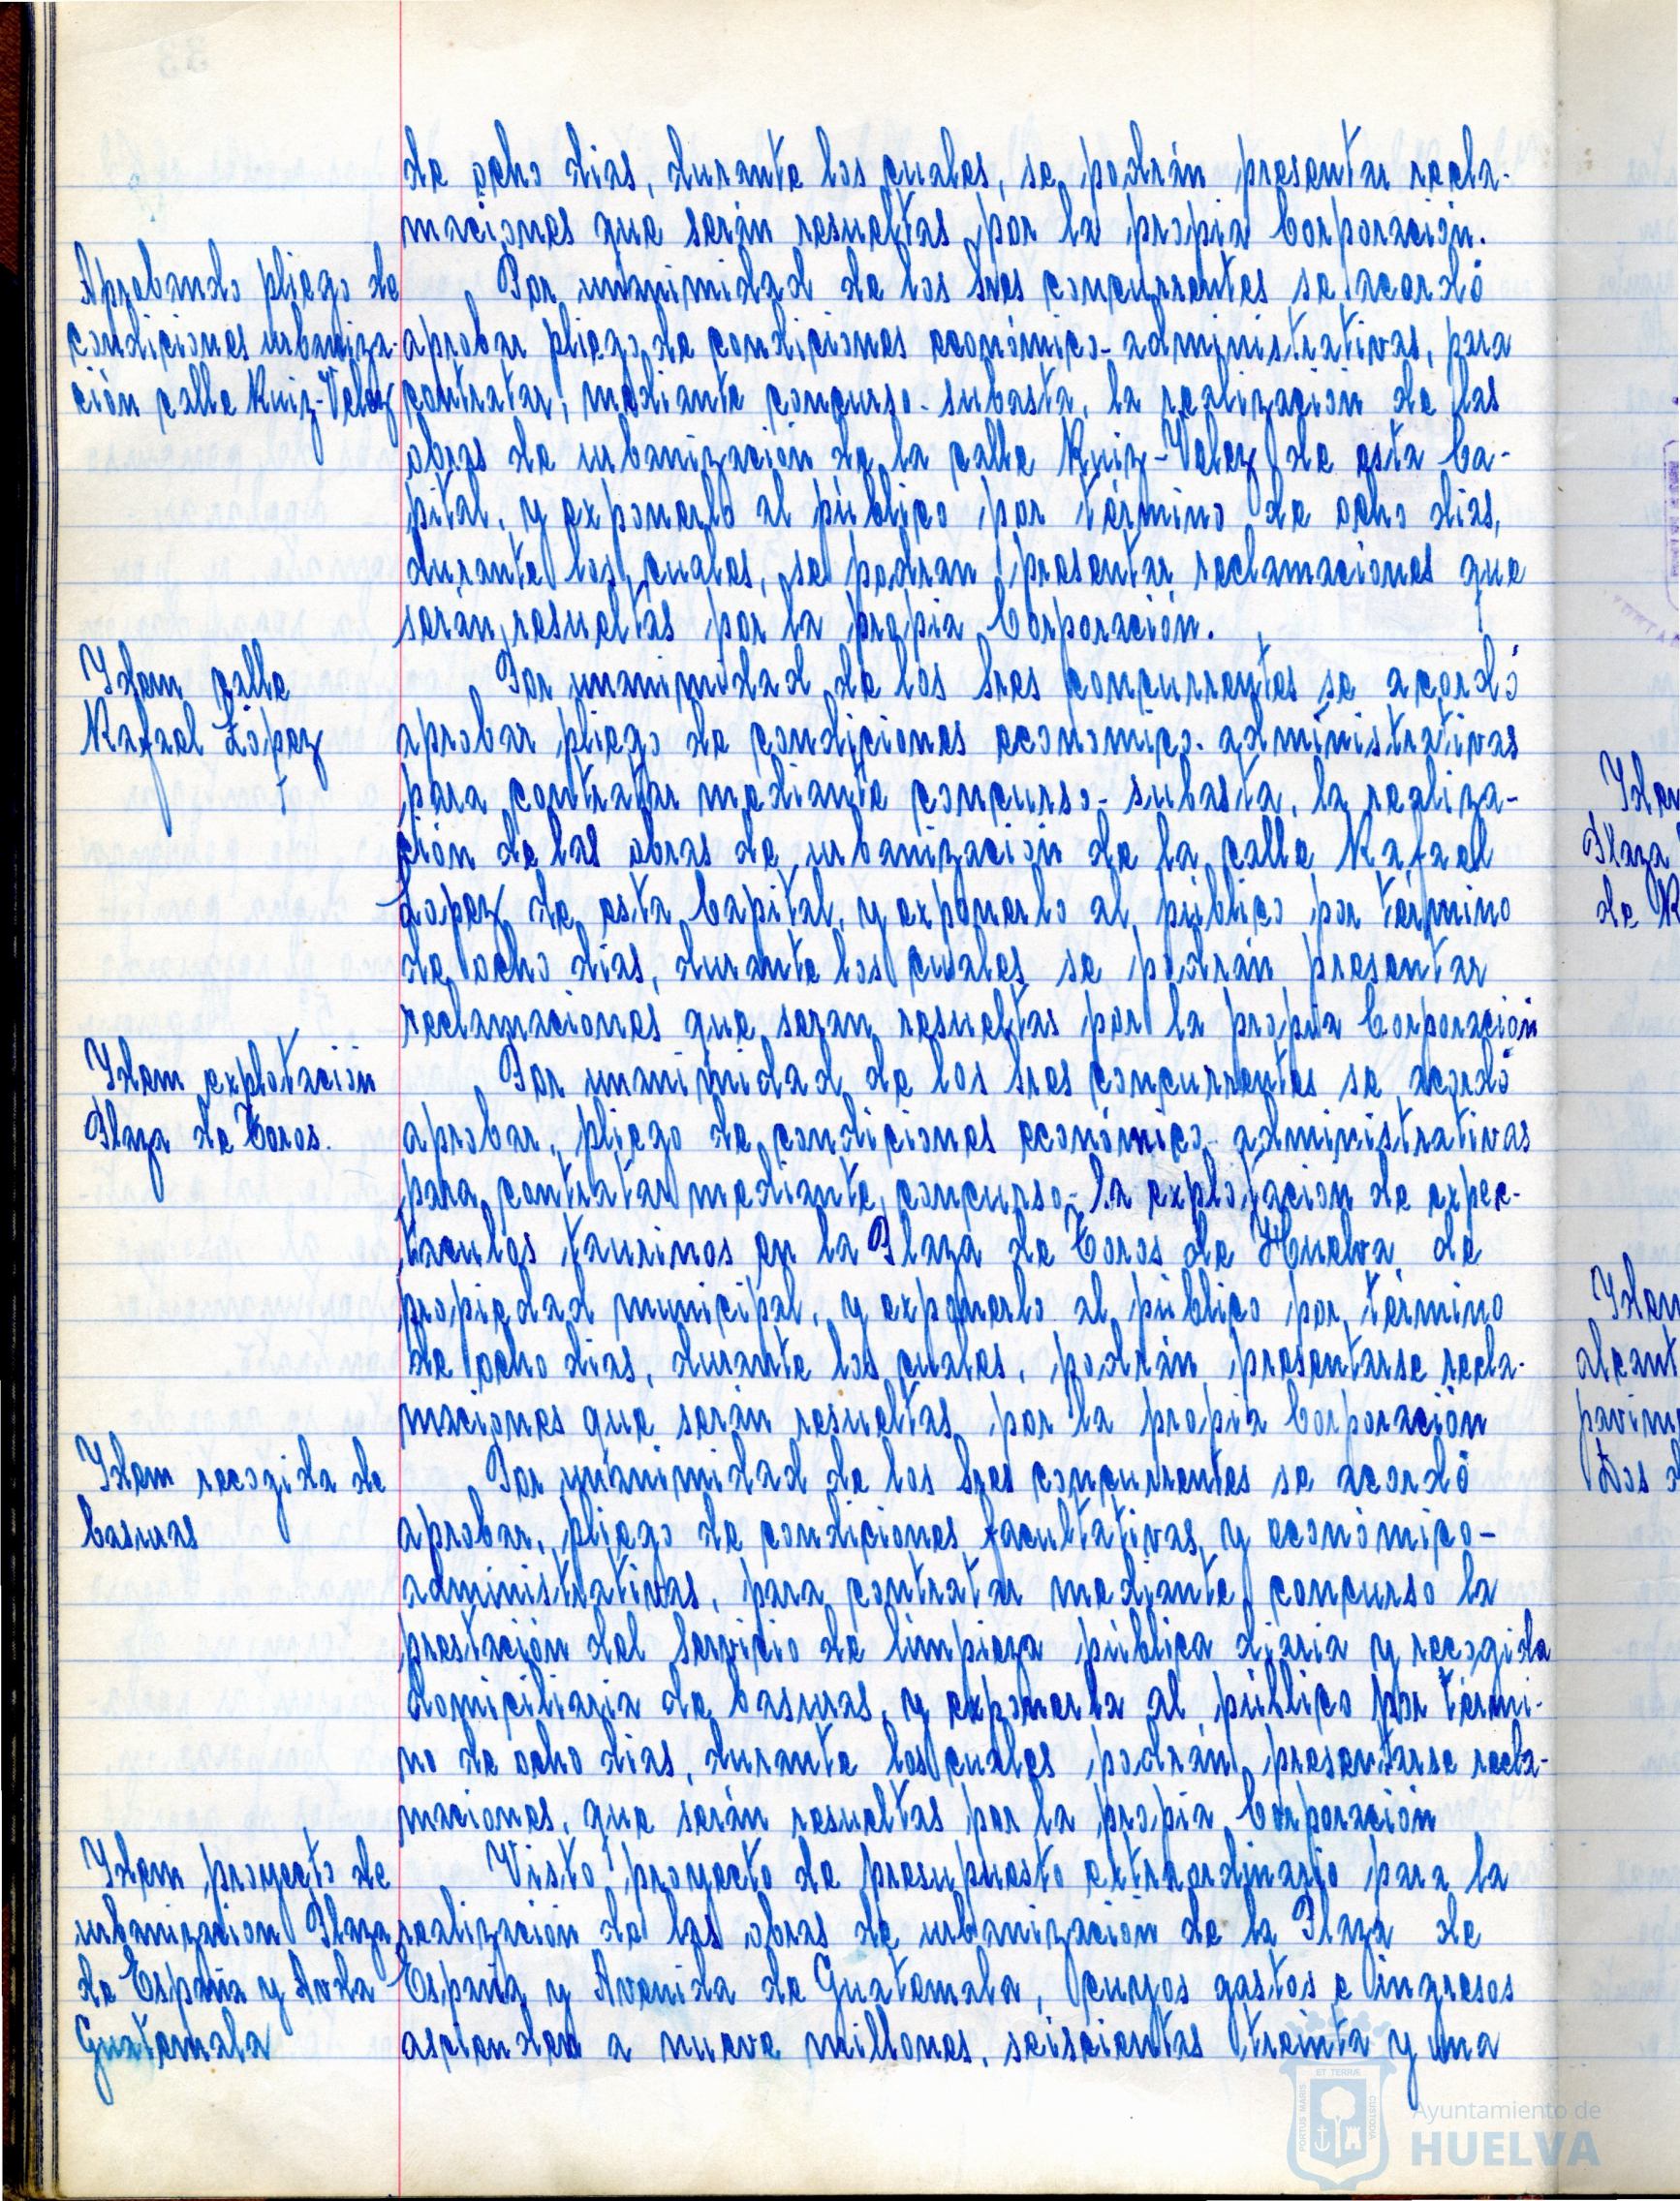 de ocho dias, durante los cuales, se podrán presentar recla-
maciones que serán resueltas por la propia Corporación.
Aprobando pliego de
condiciones urbaniza-
ción calle Ruiz-Velez
Por unanimidad de los Sres concurrentes se acordó
aprobar pliego de condiciones económico-administrativas, para
contratar, mediante concurso-subasta, la realización de las
obras de urbanización de la calle Ruiz-Velez de esta Ca-
pital, y exponerlo al público por término de ocho dias,
durante los cuales, se podran presentar reclamaciones que
serán resueltas por la propia Corporación.
Idem calle
Rafael López
Por unanimidad de los Sres concurrentes se acordó
aprobar pliego de condiciones economico-administrativas
para contratar mediante concurso-subasta, la realiza-
ción de las obras de urbanización de la calle Rafael
Lopez de esta Capital, y exponerlo al público por término
de ocho dias, durante los cuales se podrán presentar
reclamaciones que seran resueltas por la propia Corporación
Idem explotación
Plaza de Toros.
Por unanimidad de los Sres concurrentes se acordó
aprobar, pliego de condiciones económico-administrativas
para contratar mediante concurso- la explotación de expec-
taculos taurinos en la Plaza de Toros de Huelva de
propiedad municipal, y exponerlo al público por término
de ocho dias, durante los cuales, podrán presentarse recla-
maciones que serán resueltas por la propia Corporación
Idem recogida de
basuras
Por unanimidad de los Sres concurrentes se acordó
aprobar, pliego de condiciones facultativas y económico-
administrativas, para contratar mediante concurso la
prestación del Servicio de limpieza pública diaria y recogida
domiciliaria de basuras, y exponerla al público por térmi-
no de ocho dias, durante los cuales podrán presentarse recla-
maciones, que serán resueltas por la propia Corporación
Idem proyecto de
urbanizacion Plaza
de España y Avda
Guatemala
Visto proyecto de presupuesto extraordinario para la
realización de las obras de urbanización de la Plaza de
España y Avenida de Guatemala, cuyos gastos e ingresos
ascienden a nueve millones, seiscientas treinta y una
Plaza
de
pavim
Dos
PORTUS MARIS
ET TERRÆ
CUSTODIA
Ayuntamiento de
HUELVA